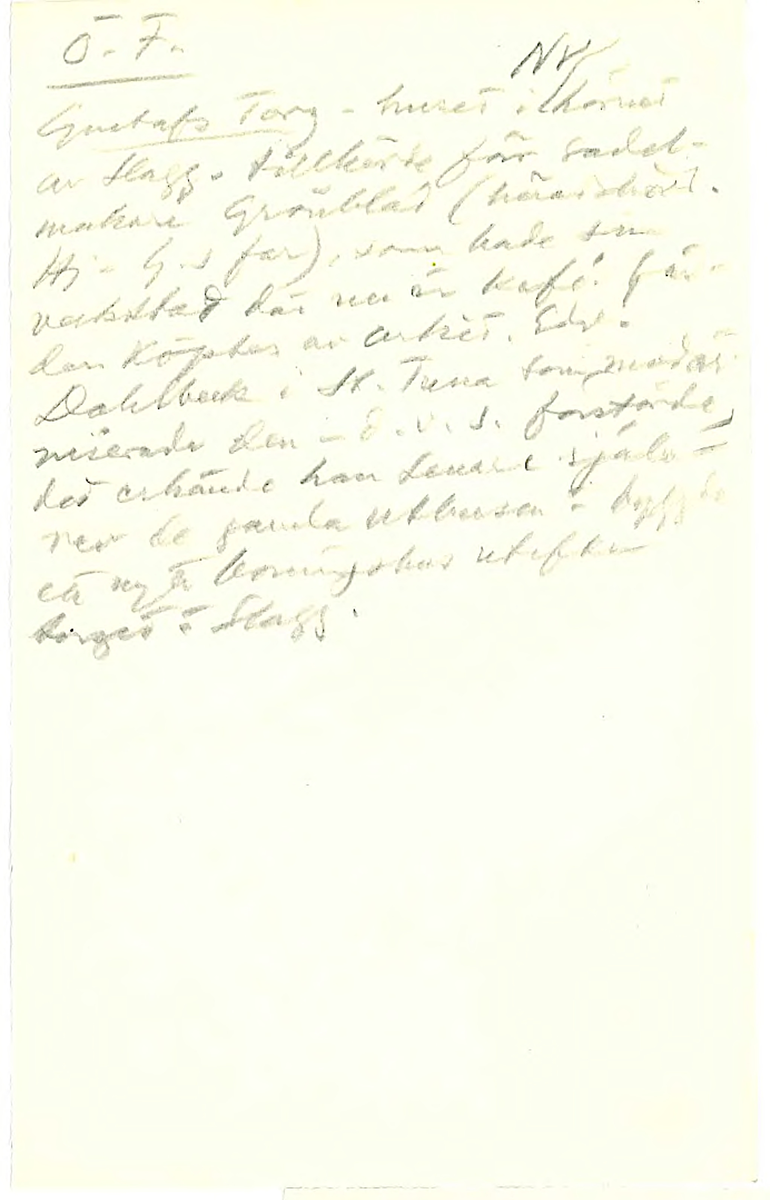 Ö.F.
NV
Gustafs Torg - huset i hörnet
av Slagg. tillhörde förr sadel-
makare Grönblad (häradshövd.
Hj. G.s far), som hade sin
verkstad där nu är kafé. Går-
den köptes av arkit. Edv.
Dahlbeck i St. Tuna som moder-
niserade den - d.v.s. förstörde,
det erkände han senare själv -
rev de gamla uthusen o. byggde
ett nytt boningshus utefter
torget o Slagg.